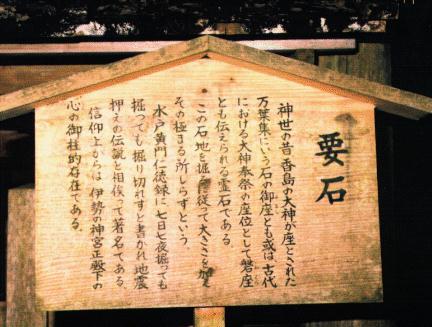 要石
神世の昔 香島の大神が座とされた
万葉集にいう石の御座とも或は 古代
における大神奉祭の座位として磐座
とも伝えられる霊石である。
この石地を掘るに従って大きさを加え
その極まる所しらずという。
水戸黄門仁徳録に七日七夜掘っても
掘っても掘り切れずと書かれ地震
押えの伝説と相俟って著名である。
信仰上からは 伊勢の神宮正殿下の
心の御柱的存在である。